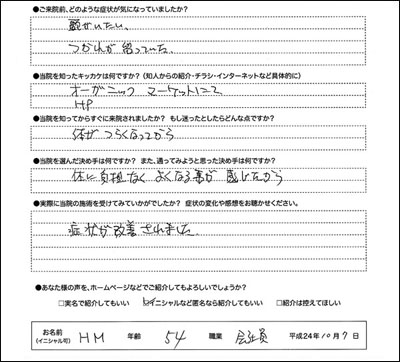 ●ご来院前、どのような症状が気になっていましたか？
頭がいたい、
つかれが溜っていた。
●当院を知ったキッカケは何ですか？（知人からの紹介・チラシ・インターネットなど具体的に）
オーガニック マーケットにて
HP
●当院を知ってからすぐに来院されましたか？ もし迷ったとしたらどんな点ですか？
体がつらくなってから
●当院を選んだ決め手は何ですか？ また、通ってみようと思った決め手は何ですか？
体に負担なくよくなる事が感じたから
●実際に当院の施術を受けてみていかがでしたか？ 症状の変化や感想をお聴かせください。
症状が改善されました。
●あなた様の声を、ホームページなどでご紹介してもよろしいでしょうか？
□実名で紹介してもいい ☑イニシャルなど匿名なら紹介してもいい □紹介は控えてほしい
お名前 （イニシャル可） HM 年齢 54 職業 会社員 平成24年10月9日